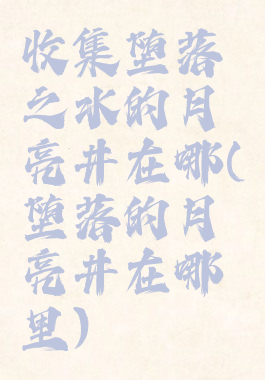 收集堕落
之水的月
亮井在哪(
堕落的月
亮井在哪
里)